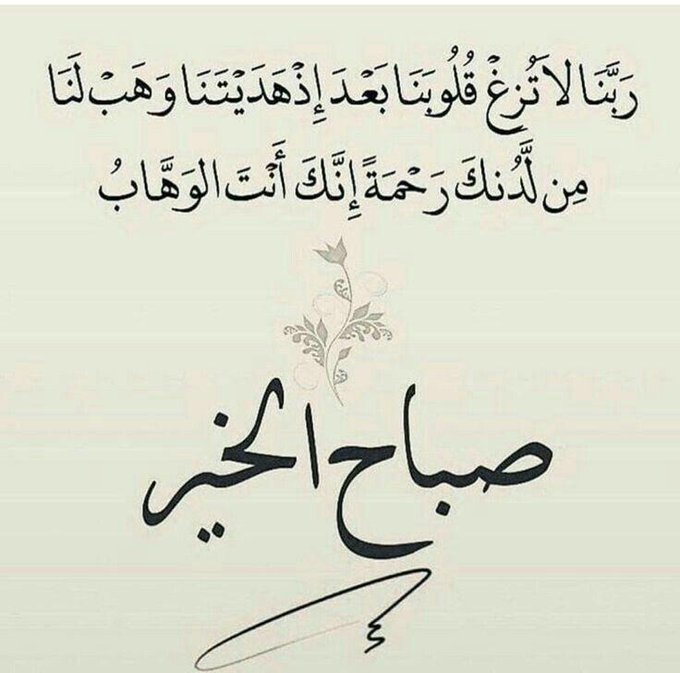 رَبَّنَا لاَ تُزِغْ قُلُوبَنَا بَعْدَ إِذْ هَدَيْتَنَا وَهَبْ لَنَا
مِن لَّدُنكَ رَحْمَةً إِنَّكَ أَنْتَ الوَهَّابُ
صباح الخير